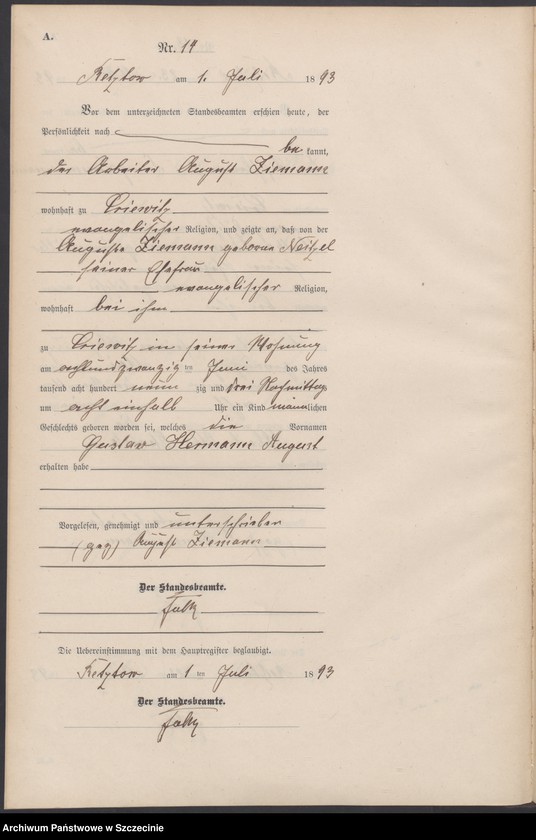 A.
Nr. 19
Retztow am 1. Juli 1893
Vor dem unterzeichneten Standesbeamten erschien heute, der
Persönlichkeit nach
be kannt,
der Arbeiter August Ziemann
wohnhaft zu Criewitz
evangelischer Religion, und zeigte an, daß von der
Auguste Ziemann geborne Neitzel
seiner Ehefrau
evangelischer Religion,
wohnhaft bei ihm
zu Criewitz in seiner Wohnung
am achtundzwanzig ten Juni des Jahres
tausend acht hundert neun zig und drei Nachmittags
um acht einhalb Uhr ein Kind männlichen
Geschlechts geboren worden sei, welches die Vornamen
Gustav Hermann August
erhalten habe
Vorgelesen, genehmigt und unterschrieben
(gez) August Ziemann
Der Standesbeamte.
Falk
Die Uebereinstimmung mit dem Hauptregister beglaubigt.
Retztow am 1 ten Juli 1893
Der Standesbeamte.
Falk
Archiwum Państwowe w Szczecinie